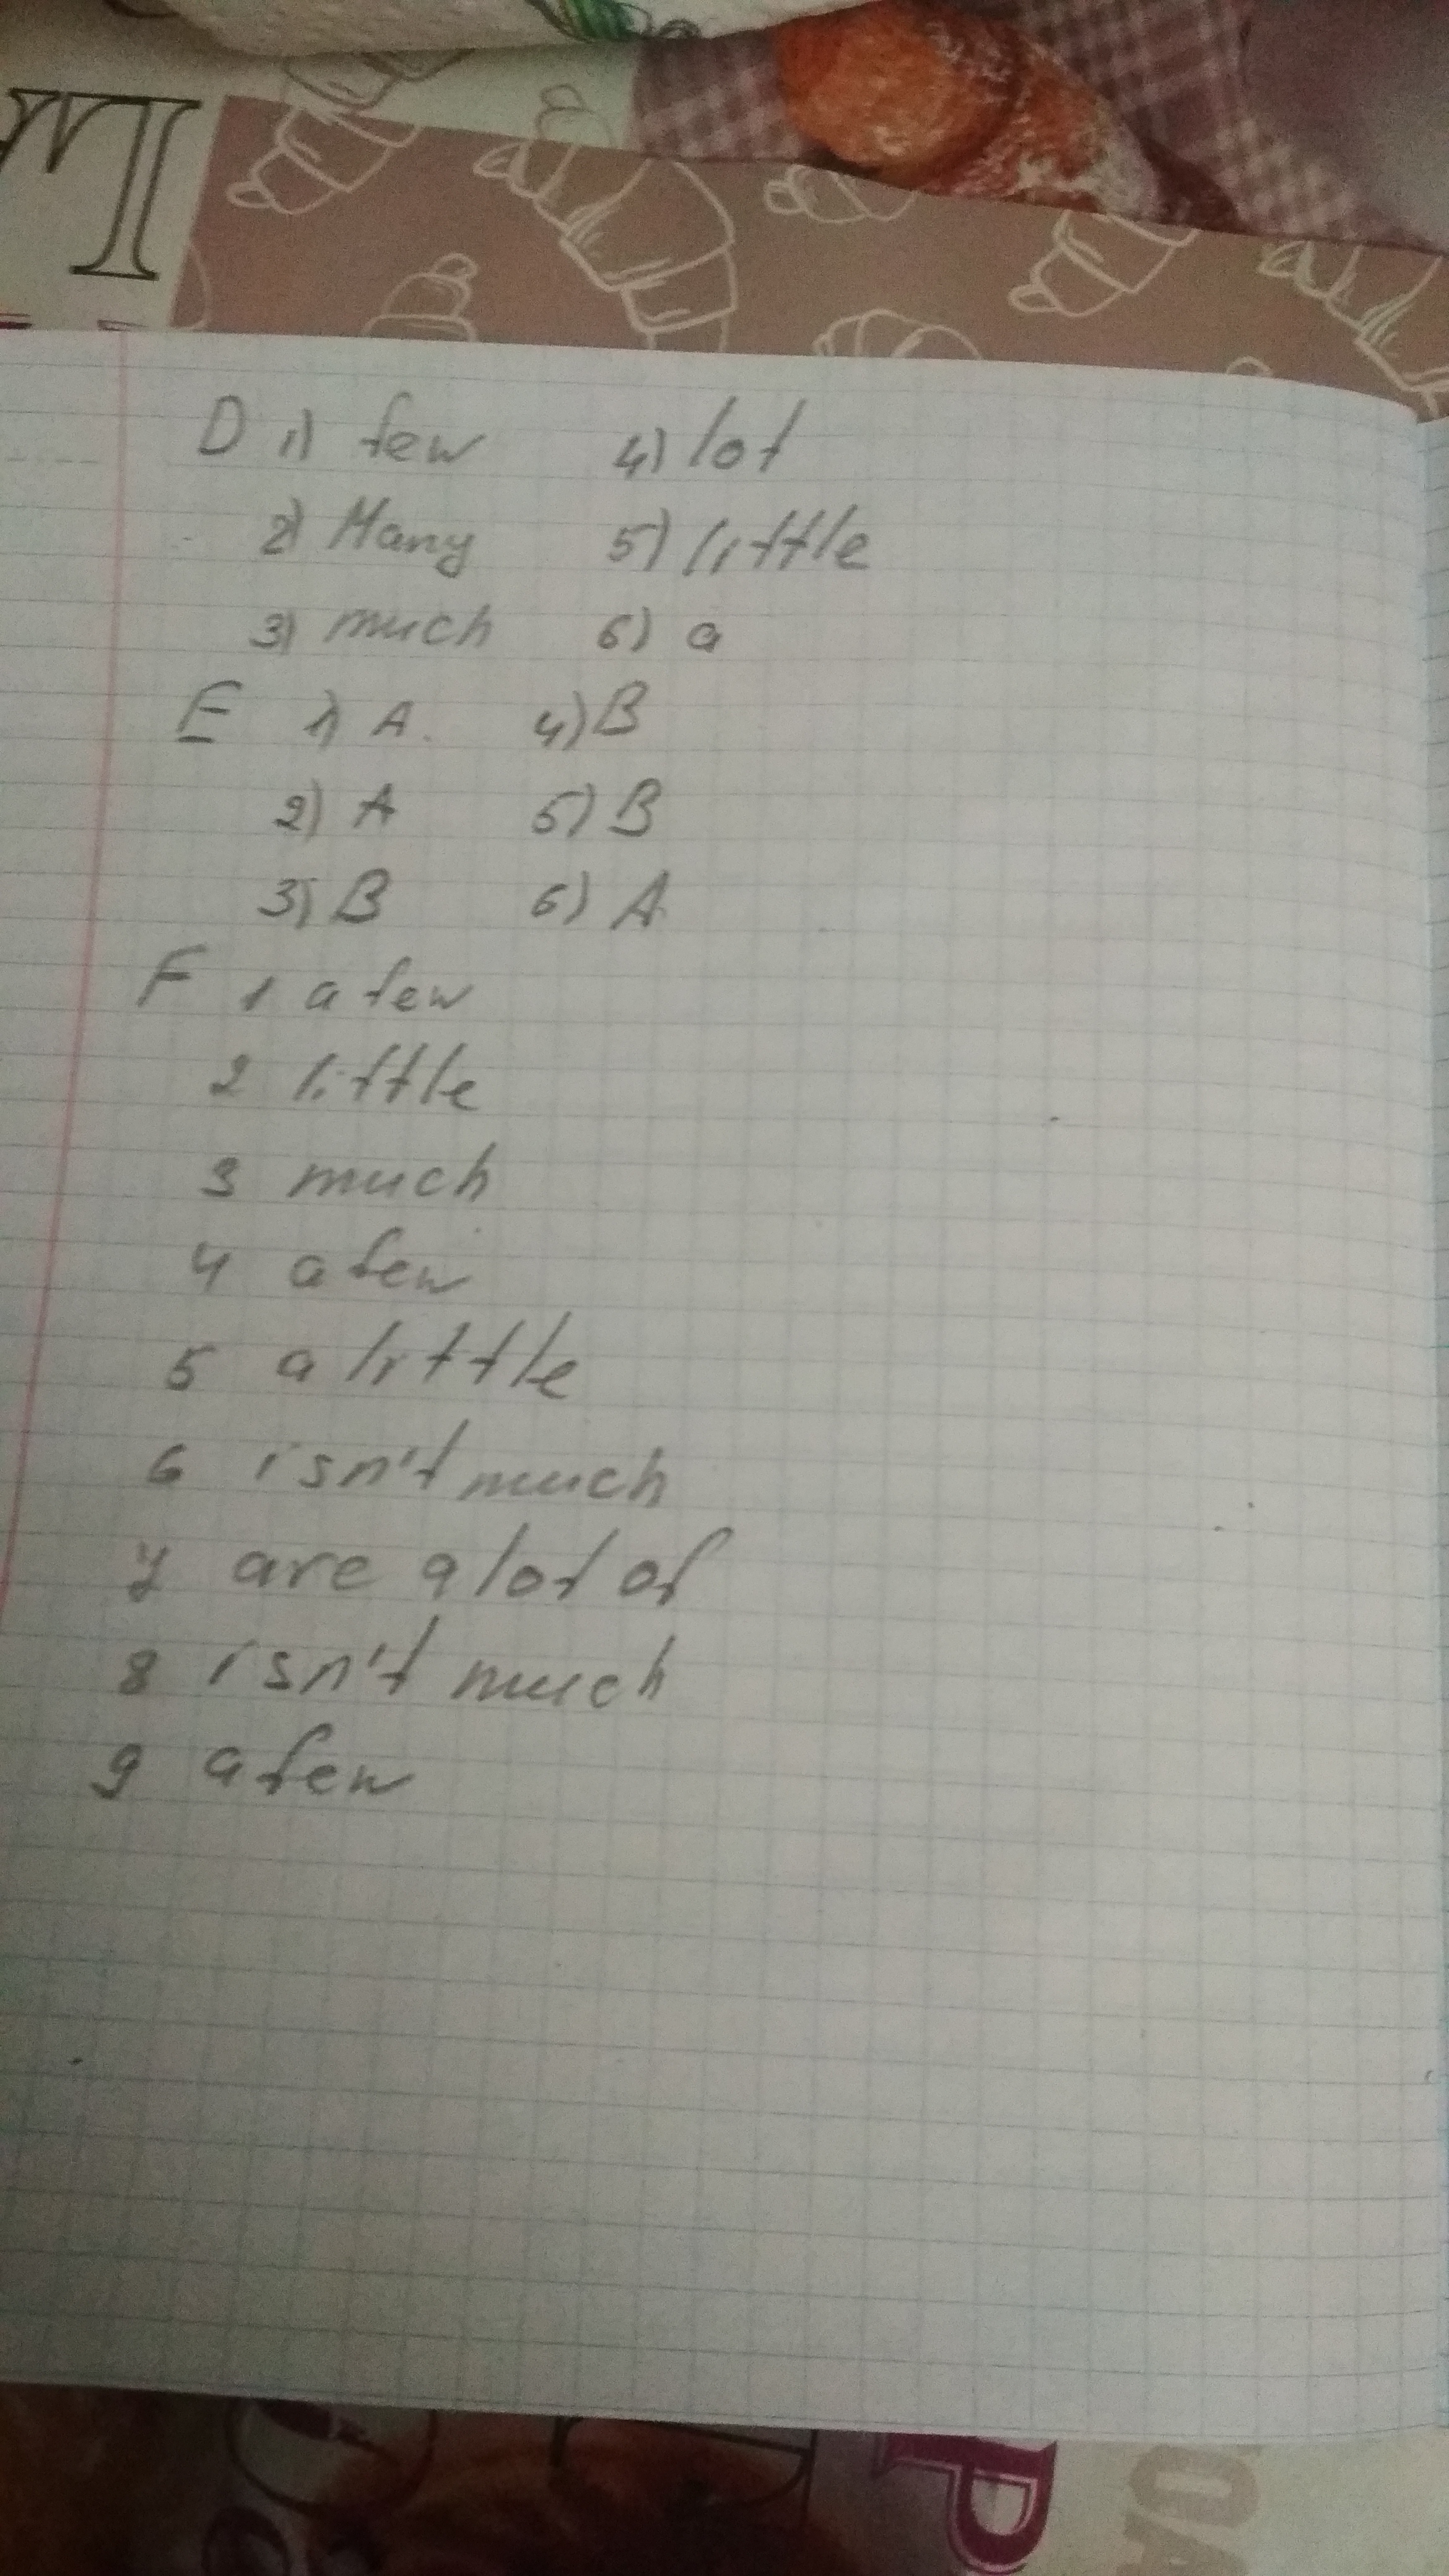 D 1) few 4) lot
2) Many 5) little
3) much 6) a
E 1) A. 4) B
2) A 5) B
3) B 6) A
F 1 a few
2 little
3 much
4 a few
5 a little
6 isn't much
7 are a lot of
8 isn't much
9 a few